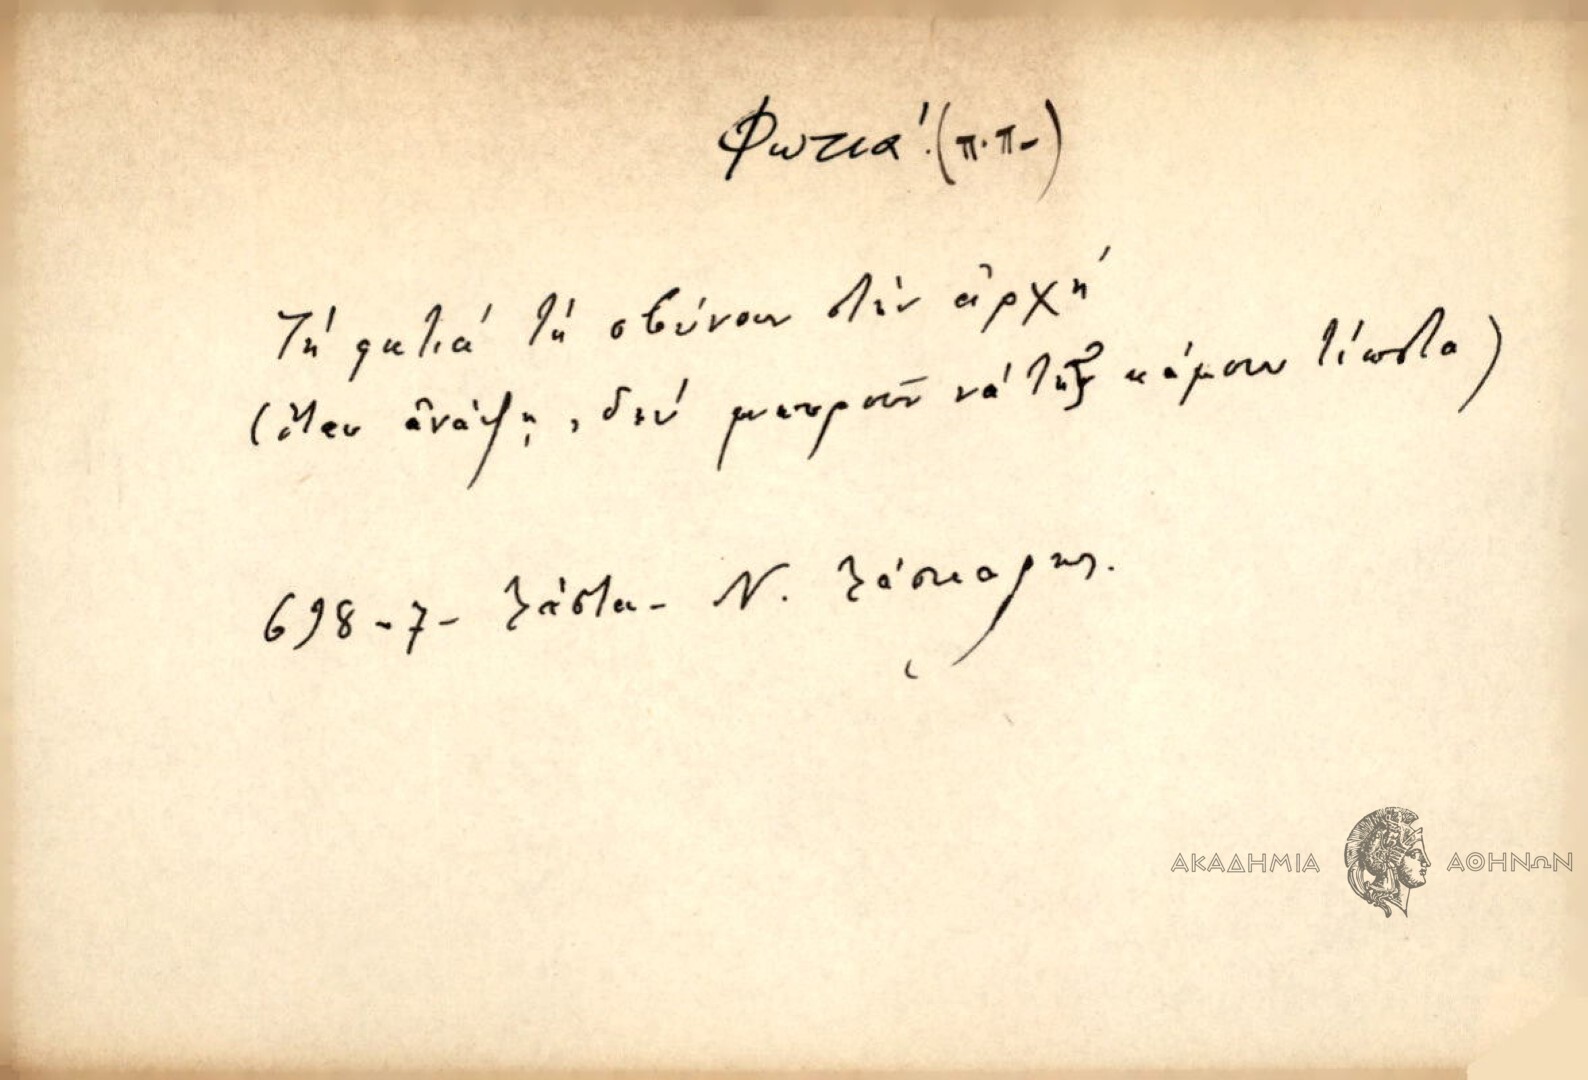 Φωτιά. (π.π.)
Τή φωτιά τή σβύνουν στήν ἀρχή
(ὅταν ἀνάψῃ, δέν μποροῦν νά τῆς κάμουν τίποτα)
698-7- Λάστα- Ν. Λάσκαρης.
ΑΚΑΔΗΜΙΑ ΑΘΗΝΩΝ